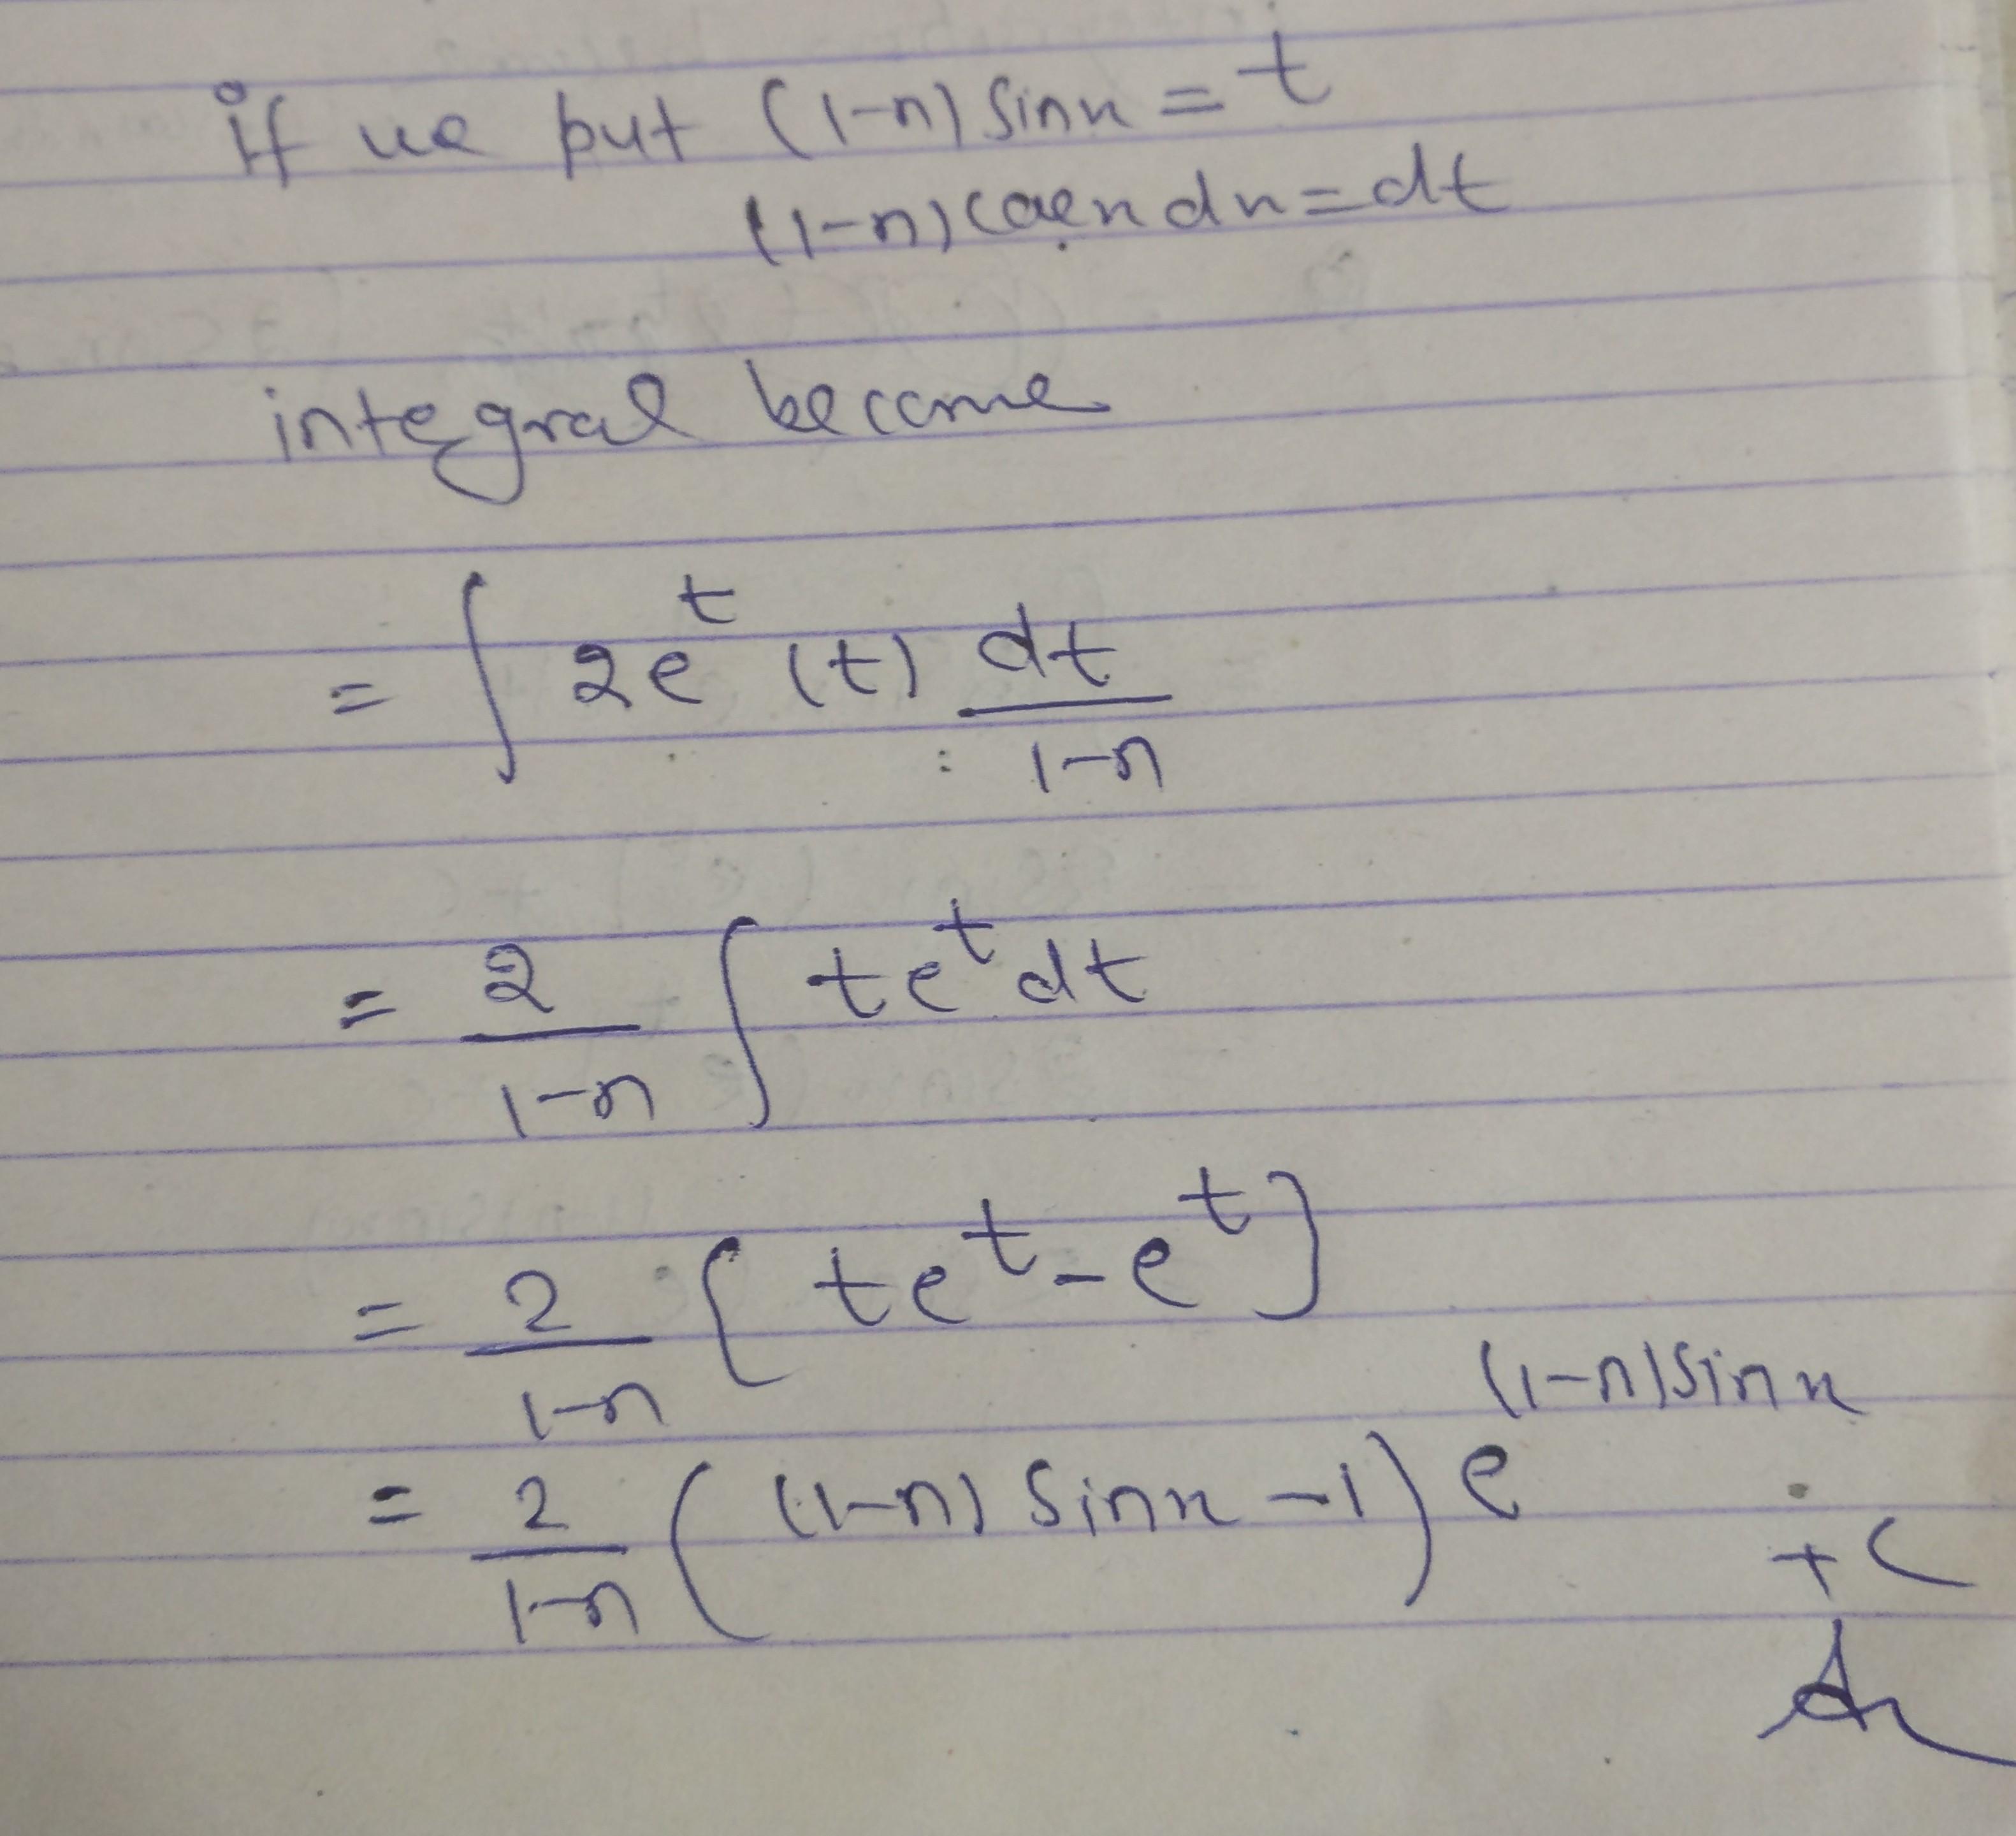 if we put (1-n) sinx = t
(1-n) cosx dx = dt
integral become
= ∫ 2e^t (t) dt/(1-n)
= 2/(1-n) ∫ te^t dt
= 2/(1-n) { te^t - e^t }
= 2/(1-n) ( (1-n) sinx - 1 ) e^((1-n) sinx) + C